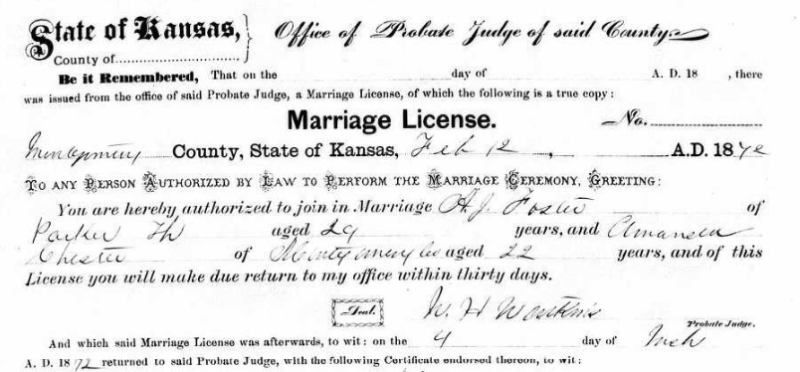 State of Kansas, Office of Probate Judge of said County.
County of
Be it Remembered, That on the day of A. D. 18 , there
was issued from the office of said Probate Judge, a Marriage License, of which the following is a true copy:
Marriage License. No.
Montgomery County, State of Kansas, Feb 12, A.D. 1872
TO ANY PERSON AUTHORIZED BY LAW TO PERFORM THE MARRIAGE CEREMONY, GREETING:
You are hereby authorized to join in Marriage A. J. Foster of
Parker aged 29 years, and Amanda
Chester of Montgomery Co aged 22 years, and of this
License you will make due return to my office within thirty days.
Seal. W. H. Watkins
Probate Judge.
And which said Marriage License was afterwards, to wit: on the 4 day of Mch
A. D. 1872 returned to said Probate Judge, with the following Certificate endorsed thereon, to wit: